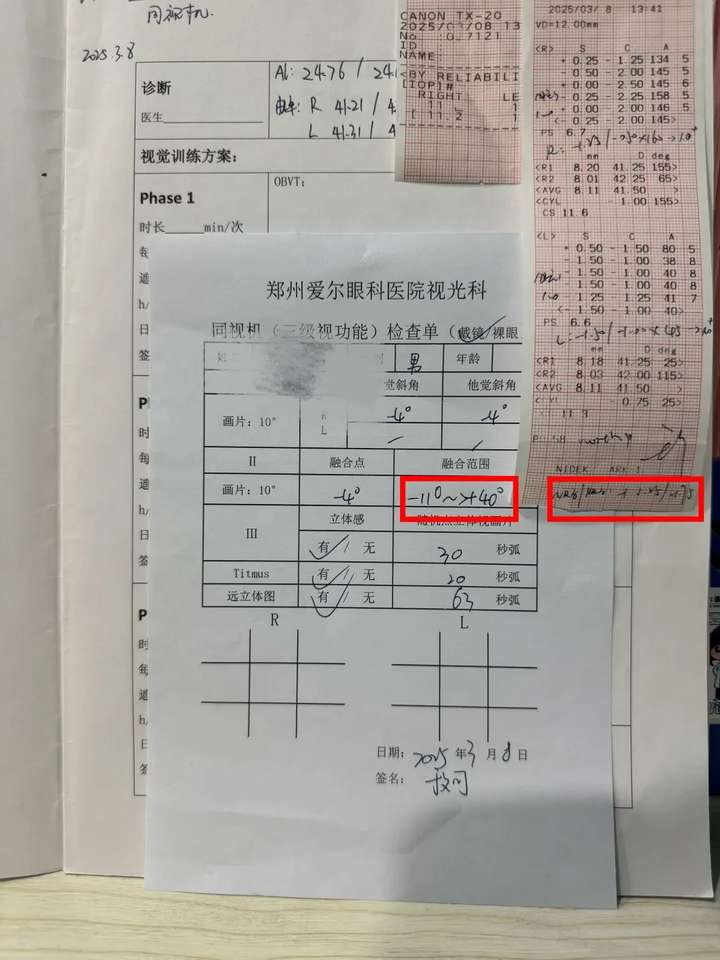 同视机.
2025.3.8
诊断
医生
Al: 24.76 / 24.1
曲率: R 41.21 / 4
L 41.31 / 4
视觉训练方案:
Phase 1
OBVT:
时长 min/次
CANON TX-20
13
No. 0.7121
ID
NAME
<BY RELIABILI
[IOP]#
RIGHT LE
11 1
[ 11.2 1
2025/03/ 8 13:41
VD=12.00mm
<R> S C A
+ 0.25 - 1.25 134 5
- 0.50 - 2.00 145 5
+ 0.00 - 2.50 145 6
- 0.25 - 2.25 158 5
+ 0.00 - 2.00 146 5
<- 0.25 - 2.00 145>
PS 6.7
mm D deg
<R1 8.20 41.25 155>
<R2 8.01 42.25 65>
<AVG 8.11 41.50 >
<CYL - 1.00 155>
CS 11.6
<L> S C A
+ 0.50 - 1.50 80 5
- 1.50 - 1.00 38 8
- 1.50 - 1.00 40 8
- 1.50 - 1.00 40 8
- 1.25 - 1.25 41 7
<- 1.50 - 1.00 40>
PS 6.6
mm D deg
<R1 8.18 41.25 25>
<R2 8.03 42.00 115>
<AVG 8.11 41.50 >
- 0.75 25>
11.3
NIDEK ARK-1
郑州爱尔眼科医院视光科
同视机(三级视功能)检查单(戴镜/裸眼
男 年龄
觉斜角 他觉斜角
画片: 10° R -4° -4°
L / /
II 融合点 融合范围
画片: 10° -4° -11°~>+40°
III 立体感 随机点立体视画片
有 / 无 30 秒弧
Titmus 有 / 无 20 秒弧
远立体图 有 / 无 63 秒弧
R L
日期: 2025 年 3 月 8 日
签名: